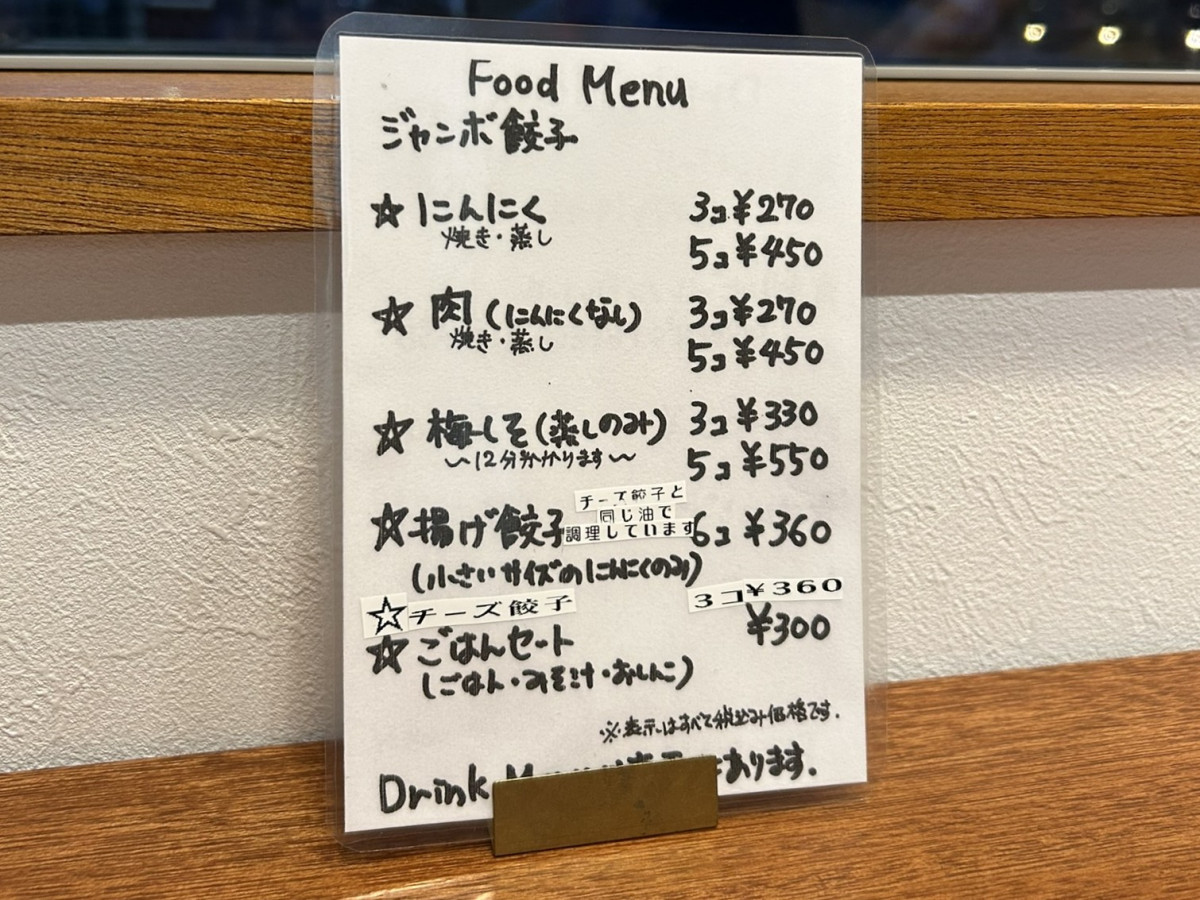 Food Menu
ジャンボ餃子
☆ にんにく 3コ ¥270
焼き・蒸し 5コ ¥450
☆ 肉 (にんにくなし) 3コ ¥270
焼き・蒸し 5コ ¥450
☆ 梅しそ (蒸しのみ) 3コ ¥330
〜12分かかります〜 5コ ¥550
チーズ餃子と
同じ油で
調理しています
☆ 揚げ餃子 6コ ¥360
(小さいサイズのにんにくのみ)
☆チーズ餃子 3コ¥360
☆ ごはんセット ¥300
(ごはん・みそ汁・おしんこ)
※表示はすべて税込み価格です.
Drink あります.